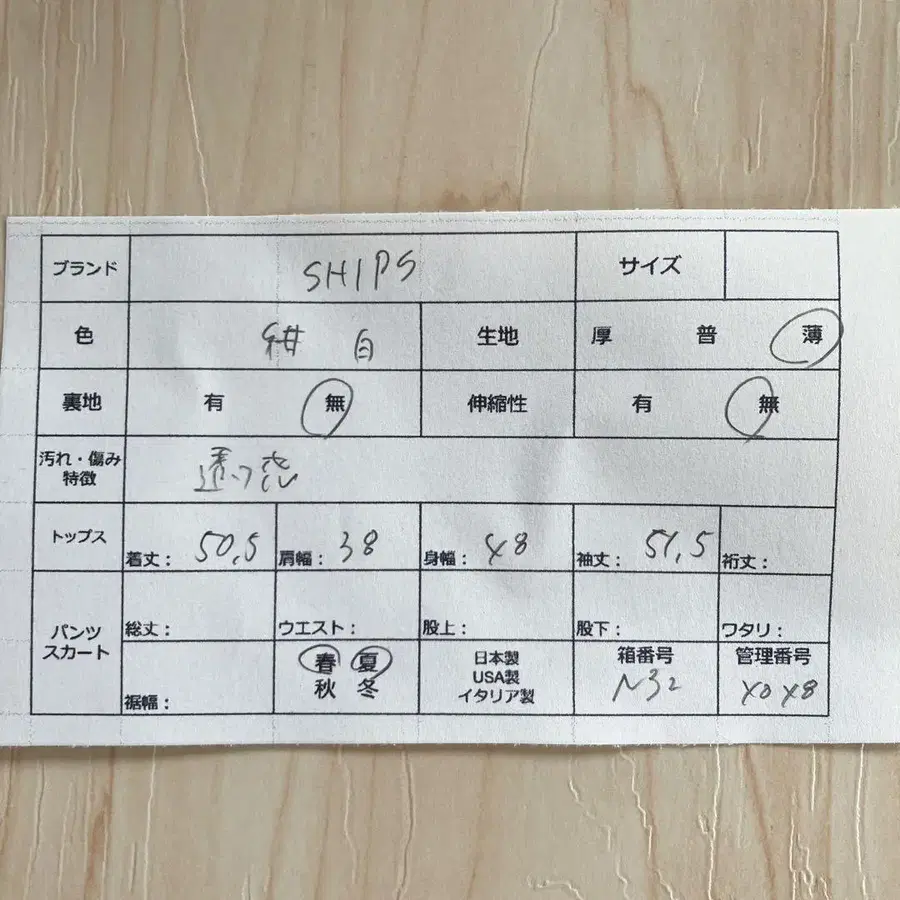 ブランド SHIPS サイズ
色 紺 白 生地 厚 普 薄
裏地 有 無 伸縮性 有 無
汚れ・傷み
特徴 透け感
トップス 着丈: 50,5 肩幅: 38 身幅: 48 袖丈: 51,5 裄丈:
パンツ
スカート
総丈: ウエスト: 股上: 股下: ワタリ:
裾幅:
春 夏
秋 冬
日本製
USA製
イタリア製
箱番号
N32
管理番号
4048